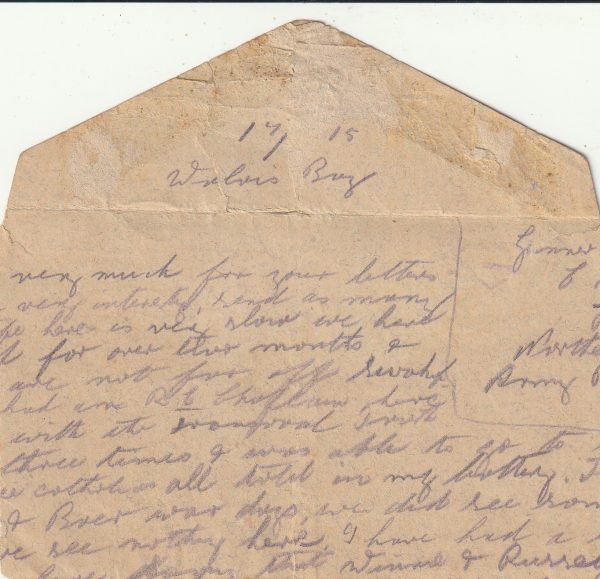 17/ 15
Walvis Bay
very much for your letters
very interesting send as many
here is very slow we have
for over two months &
are not far off Swakop
had an R C Chaplain here
with the
three times & was able to go to
catholics all told in my battery. I
& Boer war days, we did see som
we see nothing here, I have had a
that Winnie & Russe
Gunner
Northe
Army